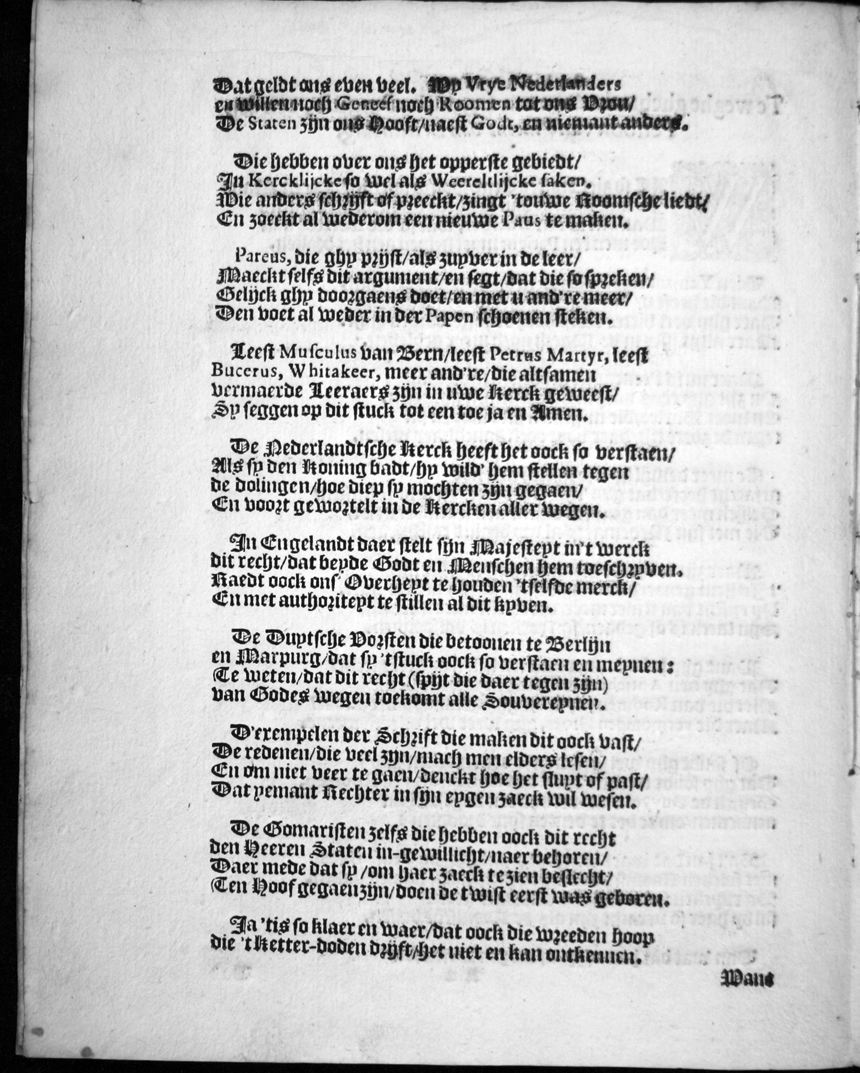 Dat geldt ons even veel. Wy Vrye Nederlanders
en willen noch Geneef noch Roomen tot ons Vrou/
De Staten zijn ons Hooft/naest Godt, en niemant anders.
Die hebben over ons het opperste gebiedt/
In Kercklijcke so wel als Weereltlijcke saken.
Wie anders schrijft of preeckt/zingt 'touwe Roomsche liedt/
En zoeckt al wederom een nieuwe Paus te maken.
Pareus, die ghy prijst/als zuyver in de leer/
Maeckt selfs dit argument/en segt/dat die so spreken/
Gelijck ghy doorgaens doet/en met u and're meer/
Den voet al weder in der Papen schoenen steken.
Leest Musculus van Bern/leest Petrus Martyr, leest
Bucerus, Whitakeer, meer and're/die altsamen
vermaerde Leeraers zijn in uwe Kerck geweest/
Sy seggen op dit stuck tot een toe ja en Amen.
De Nederlandtsche Kerck heeft het oock so verstaen/
Als sy den Koning badt/hy wild' hem stellen tegen
de dolingen/hoe diep sy mochten zijn gegaen/
En voort gewortelt in de Kercken aller wegen.
In Engelandt daer stelt sijn Majesteyt in't werck
dit recht/dat beyde Godt en Menschen hem toeschryven.
Raedt oock ons' Overheyt te houden 'tselfde merck/
En met authoriteyt te stillen al dit kyven.
De Duytsche Vorsten die betoonen te Berlijn
en Marpurg/dat sy 'tstuck oock so verstaen en meynen:
(Te weten/dat dit recht (spijt die daer tegen zijn)
van Godes wegen toekomt alle Souvereynen.
D'exempelen der Schrift die maken dit oock vast/
De redenen/die veel zijn/mach men elders lesen/
En om niet veer te gaen/denckt hoe het sluyt of past/
Dat yemant Rechter in sijn eygen zaeck wil wesen.
De Gomaristen zelfs die hebben oock dit recht
den Heeren Staten in-gewillicht/naer behoren/
Daer mede dat sy/om haer zaeck te zien beslecht/
Ten Hoof gegaen zijn/doen de twist eerst was geboren.
Ja 'tis so klaer en waer/dat oock die wreeden hoop
die 't Ketter-doden drijft/het niet en kan ontkennen.
Want